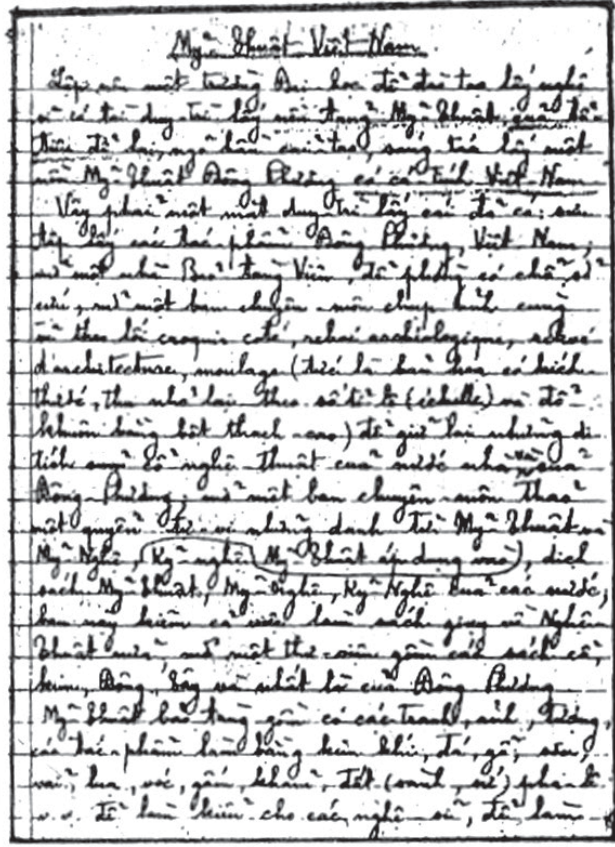 Mỹ-Thuật Việt-Nam
Lập nên một trường Đại-học để đào tạo lấy nghệ
sĩ có tài duy-trì lấy nền tảng Mỹ-Thuật quá-bộ
tiên để lại, ngõ hầu cải-tạo, sáng tác lấy một
nền Mỹ-Thuật Đông Phương có cá tính Việt-Nam
Vậy phải một mặt duy-trì lấy cái đã có: sưu
tập lấy các tác-phẩm Đông Phương, Việt Nam,
mở một nhà Bảo-tàng Viện, để phòng có chỗ
cứu, mở một ban chuyên-môn chụp hình cùng
vẽ theo lối croquis coté, relevé archéologique, relevé
d'architecture, moulage (tức là bản họa có kích-
thước, thu nhỏ lại theo số tỉ lệ (échelle) và đổ
khuôn bằng bột thạch-cao) để giữ lại những di
tích nghệ-thuật của nước nhà và của
Đông-Phương; mở một ban chuyên-môn thảo
một quyển tự-vị những danh từ Mỹ-Thuật và
Mỹ-Nghệ, Kỹ-nghệ (Mỹ-Thuật áp dụng vào), dịch
sách Mỹ-Thuật, Mỹ-Nghệ, Kỹ-Nghệ của các nước,
ban này kiêm cả việc làm sách giạy về Nghệ-
Thuật nữa, mở một thư-viện gồm các sách cổ,
kim, Đông, Tây và nhất là của Đông Phương
Mỹ-Thuật bảo tàng gồm có các tranh, ảnh, tượng,
các tác-phẩm làm bằng kim khí, đá, gỗ, sơn,
vải, lụa, vóc, gấm, khảm, đất (sành, sứ) pha-lê
v.v. để làm kiểu cho các nghệ-sĩ, để làm